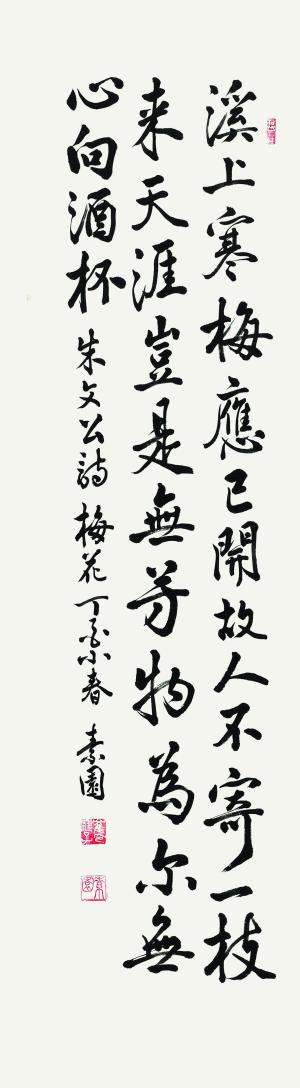 溪上寒梅應已開故人不寄一枝
来天涯豈是無芳物為尔無
心向酒杯
朱文公詩 梅花 丁亥小春 素園